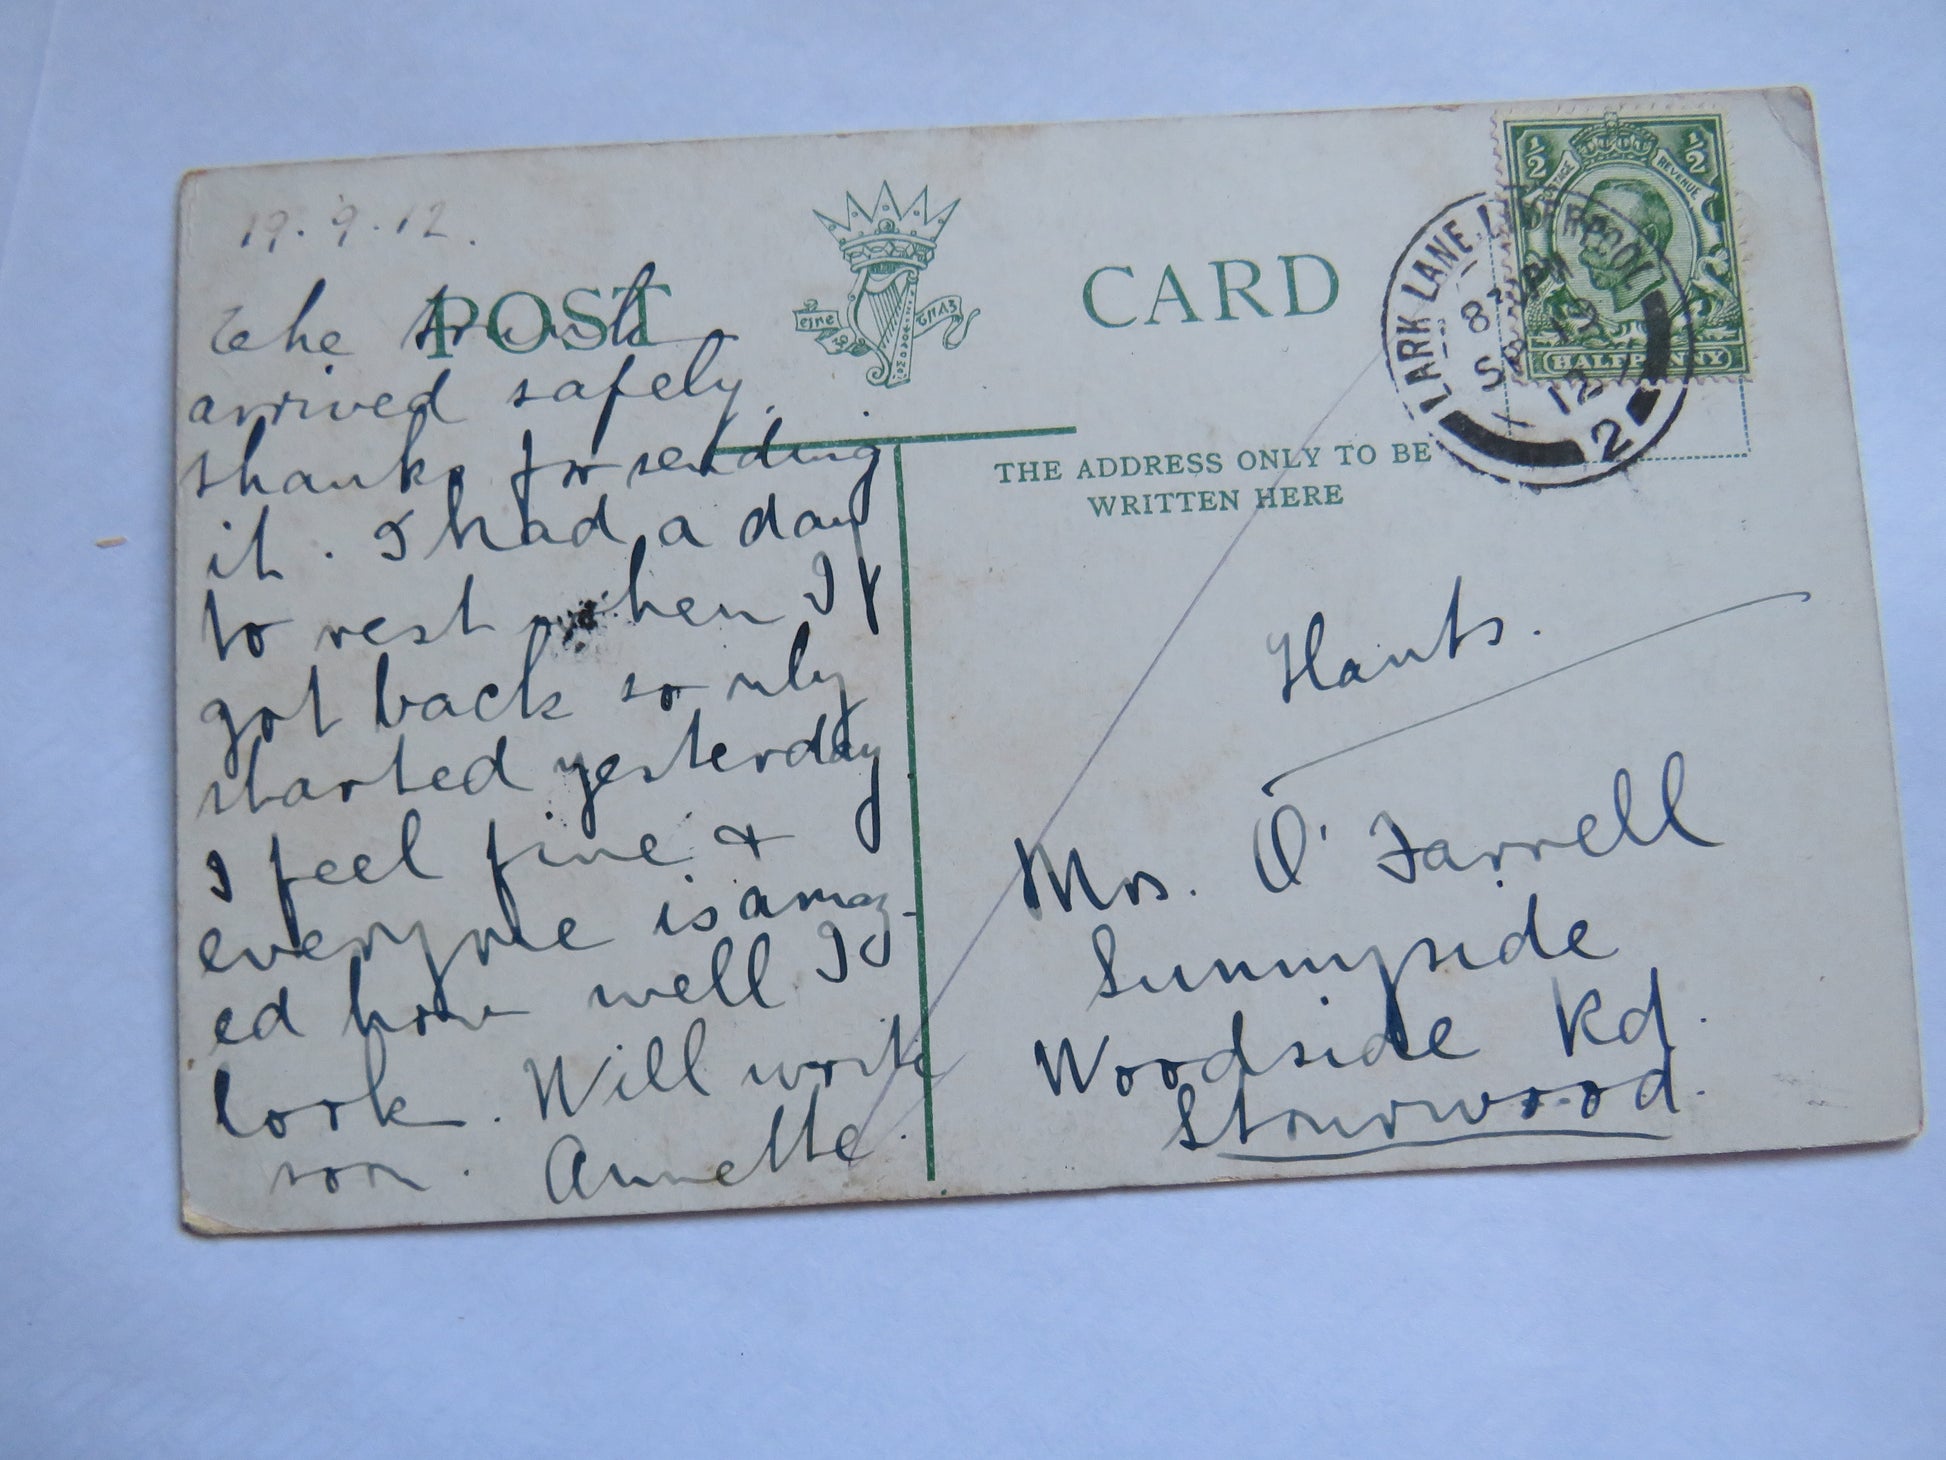 19.9.12.
The trunk
arrived safely.
thanks for sending
it. I had a day
to rest when I
got back so only
started yesterday
I feel fine &
everyone is amaz-
ed how well I
look. Will write
soon. Annette.
POST CARD
eire
THE ADDRESS ONLY TO BE
WRITTEN HERE
Hants.
Mrs. O'Farrell
Sunnyside
Woodside Rd.
Stourwood.
LARK LANE. LIVERPOOL
8 PM
SP 19
12
2
1/2 1/2
POSTAGE REVENUE
HALFPENNY